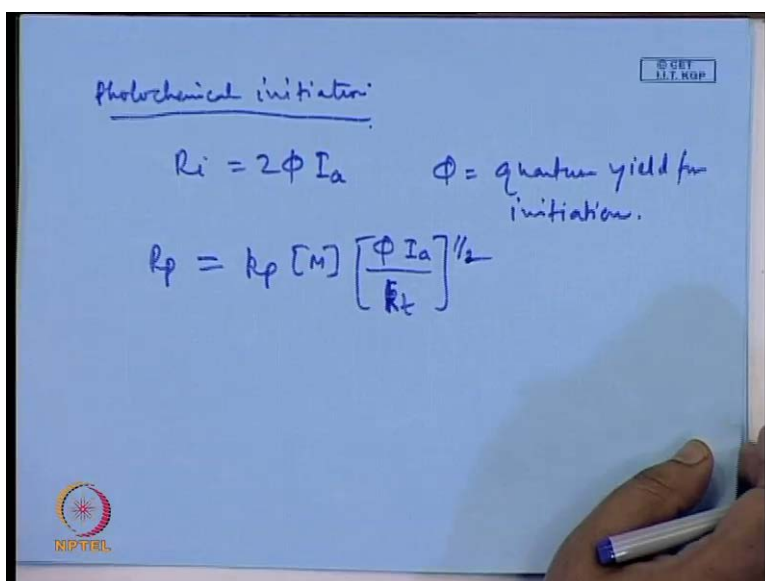 © CET
I.I.T. KGP
Photochemical initiation
Ri = 2Φ Ia
Φ = quantum yield for
initiation.
Rp = kp [M] [Φ Ia / kt]^1/2
NPTEL